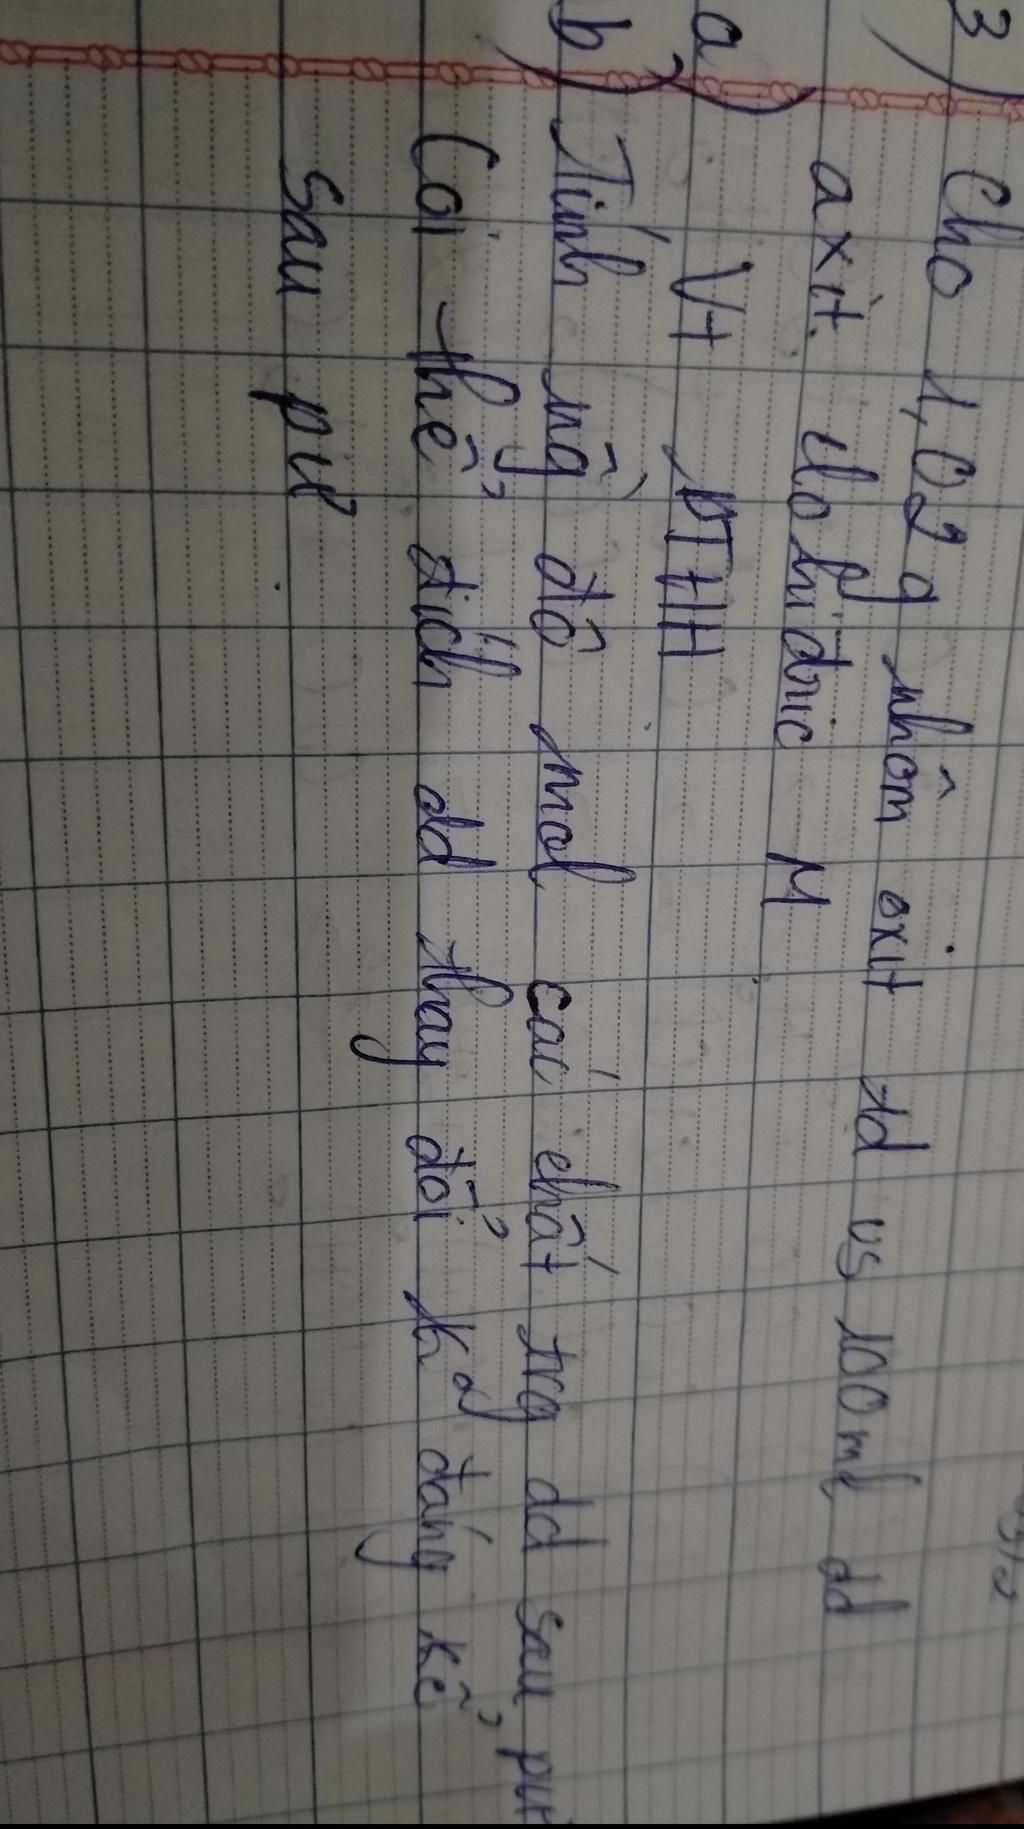 3) Cho 1,02g nhôm oxit td vs 100ml dd
axit clohiđric M
a) Vt PTHH
b) Tính ngồ độ mol các chất trg dd sau pư
Coi thể tích dd thay đổi k đáng kể
sau pư